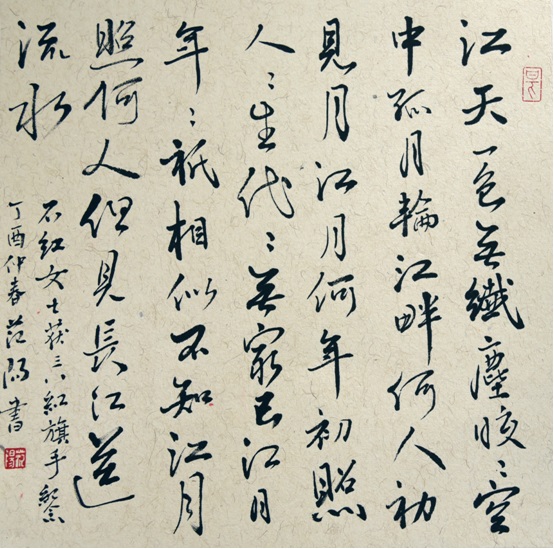 江天一色無纖塵皎〻空
中孤月輪江畔何人初
見月江月何年初照
人〻生代〻無窮已江月
年〻祇相似不知江月
照何人但見長江送
流水
石紅女士获三八紅旗手紀念
丁酉仲春范 書